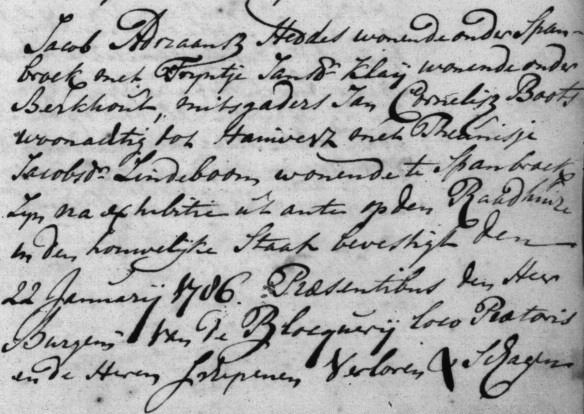 Jacob Adriaansz Heddes wonende onder Span-
broek met Trijntje Jansdr. Klaij wonende onder
Berkhout, mitsgaders Jan Cornelisz Boots
woonachtig tot Hauwert met Theunisje
Jacobsdr. Lindeboom wonende te Spanbroek
Zijn na exhibitie ut ante op den Raadhuize
in den houwelijke Staat bevestigt den
22 Januarij 1786. Præsentibus den Heer
Burgem van de Blocquerij loco Prætoris
en de Heren Schepenen Verloren & Schagen